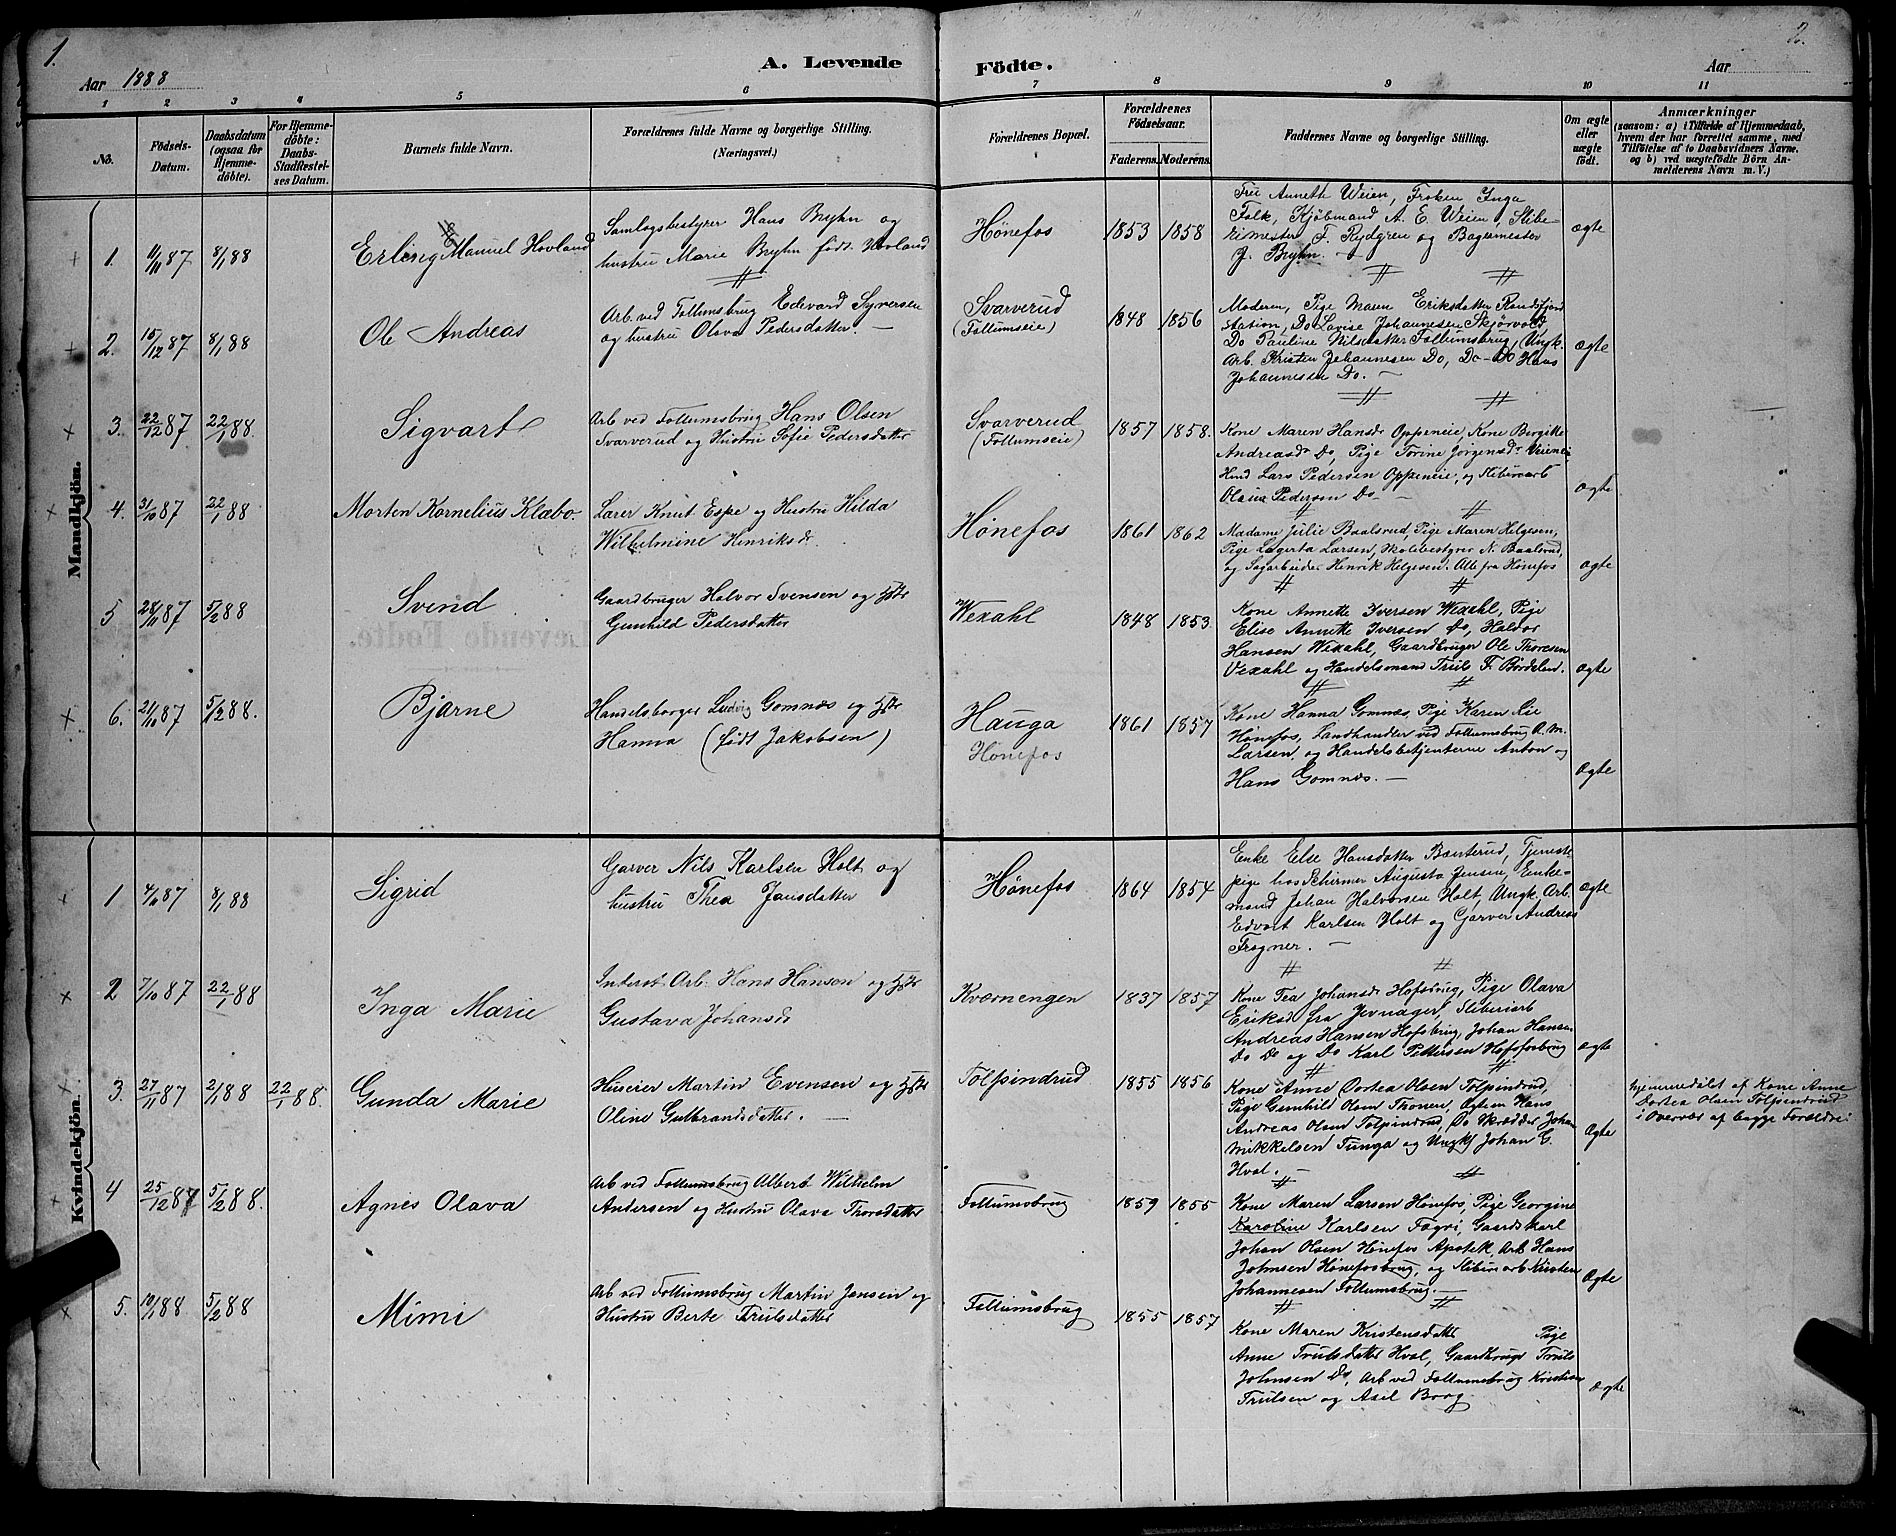 1.
2.
A. Levende Fødte.
Aar 1888
Aar
1 2 3 4 5 6 7 8 9 10 11
No.
Fødsels-Datum.
Daabsdatum (ogsaa for Hjemme-døbte).
For Hjemme-døbte: Daabs-Stadfæstel-ses Datum.
Barnets fulde Navn.
Forældrenes fulde Navne og borgerlige Stilling.
(Næringsvei.)
Forældrenes Bopæl.
Forældrenes Fødselsaar.
Faderens. Moderens.
Faddernes Navne og borgerlige Stilling.
Om ægte eller uægte født.
Anmærkninger
(saasom: a) i Tilfælde af Hjemmedaab,
hvem der har forrettet samme, med
Tilføielse af to Daabsvidners Navne.
og b) ved uægtefødte Børn An-
melderens Navn m. V.)
Mandkjön.
1. 11/11 87 8/1 88 Erling Manuel Hovland
Samlagsbestyrer Hans Bryhn og
hustru Marie Bryhn født Hovland
Hönefos 1853 1858
Fru Annette Weien, Frøken Inga
Falk, Kjöbmand A. E. Weien, Slibe-
rimester F. Rydgren og Bagermester
J. Bryhn.
ægte
2. 15/12 87 8/1 88 Ole Andreas
Arb. ved Follumsbrug Edevard Syversen
og hustru Olava Pedersdatter.
Svarverud
(Follumseie)
1848 1856
Moderen, Pige Maren Eriksdatter Randsfjord
station, Do Lovise Johannesen Skjörvold
Do Pauline Nilsdatter Follumsbrug, Ungk.
Arb. Kristen Johannesen Do, Do-Do Hans
Johannesen Do.
ægte
3. 22/12 87 22/1 88 Sigvart
Arb ved Follumsbrug Hans Olsen
Svarverud og Hustru Sofie Pedersdatter
Svarverud
(Follumseie)
1857 1858.
Kone Maren Hansdr Oppeneie, Kone Bergitte
Andreasdr Do, Pige Torine Jorgensdr Veienei
Hmd Lars Pedersen Oppeneie, og Sliberiarb
Olaus Pedersen Do
Ægte
4. 31/10 87 22/1 88 Morten Kornelius Klæbo.
Lærer Knut Espe og Hustru Hilda
Wilhelmine Henriksdr
Hönefos 1861 1862
Madame Julie Baalsrud, Pige Maren Helgesen,
Pige Lagerta Larsen, Skolebestyrer N. Baalsrud,
og Sagarbeider Henrik Helgesen. Alle fra Hönefos
Ægte
5 28/11 87 5/2 88 Svend
Gaardbruger Halvor Svensen og Hstr
Gunhild Pedersdatter
Wexahl 1848 1853
Kone Annette Iversen Wexahl, Pige
Elise Annette Iversen Do, Halvor
Hansen Wexahl, Gaardbruger Ole Thoresen
Vexahl og Handelsmand Truls F. Bördalen.
Ægte
6. 2/10 87 5/2 88. Bjarne
Handelsborger Ludvig Gomnæs og Hstr
Hanna (født Jakobsen)
Hauga
Hönefos
1861 1857
Kone Hanna Gomnæs, Pige Karen Lie
Hönefos, Landhandler ved Follumsbrug A. M.
Larsen, og Handelsbetjenterne Anton og
Hans Gomnæs.
Ægte
Kvindekjön.
1 4/10 87 8/1 88 Sigrid
Garver Nils Karlsen Holt og
hustru Thea Jansdatter
Hönefos 1864 1854
Enke Else Hansdatter Banterud, Tjeneste-
pige hos Schirmer Augusta Jensen, Enke-
mand Johan Halvorsen Holt, Ungk. Arb.
Edvart Karlsen Holt og Garver Andreas
Frogner.
Ægte
2 7/10 87 22/1 88 Inga Marie
Inderst Arb. Hans Hansen og Hstr
Gustava Johansdr
Kværnengen 1837 1857
Kone Tea Johansdr Hofsbrug, Pige Olava
Eriksd fra Jevnager, Sliberiarb
Andreas Hansen Hofsbrug, Johan Hansen
Do Do og Do Karl Pettersen Hofsfosbrug
Ægte
3. 27/11 87 2/1 88 22/1 88. Gunda Marie
Huseier Martin Evensen og Hstr
Oline Gulbrandsdatter.
Tolpindrud 1855 1856
Kone Anne Dortea Olsen Tolpindrud,
Pige Gunhild Olsen Thonen, Ogsaa Hans
Andreas Olsen Tolpindrud, Do Skrædder Johan
Mikkelsen Tunga og Ungk Johan G.
Hval.
Ægte
hjemmedöbt af Kone Anne
Dortea Olsen Tolpindrud
i Overvær af begge Forældre.
4 25/12 87 5/2 88. Agnes Olava
Arb ved Follumsbrug Albert Wilhelm
Andersen og Hustru Olava Thorsdatter
Follumsbrug 1859 1855
Kone Maren Larsen Hönefos, Pige Georgine
Karoline Karlsen Fagri, Gaardskarl
Johan Olsen Hönefos Apotek, Arb Hans
Johnsen Hönefosbrug, og Sliberiarb Kristen
Johannesen Follumsbrug.
Ægte
5. 10/1 88 5/2 88 Mimi
Arb ved Follumsbrug Martin Jansen og
Hustru Berte Trulsdatter
Follumsbrug 1855 1857
Kone Maren Kristensdatter Pige
Anne Trulsdatter Hval, Gaardbruger Truls
Johnsen Do, Arb ved Follumsbrug Kristian
Trulsen og Axel Borg
Ægte